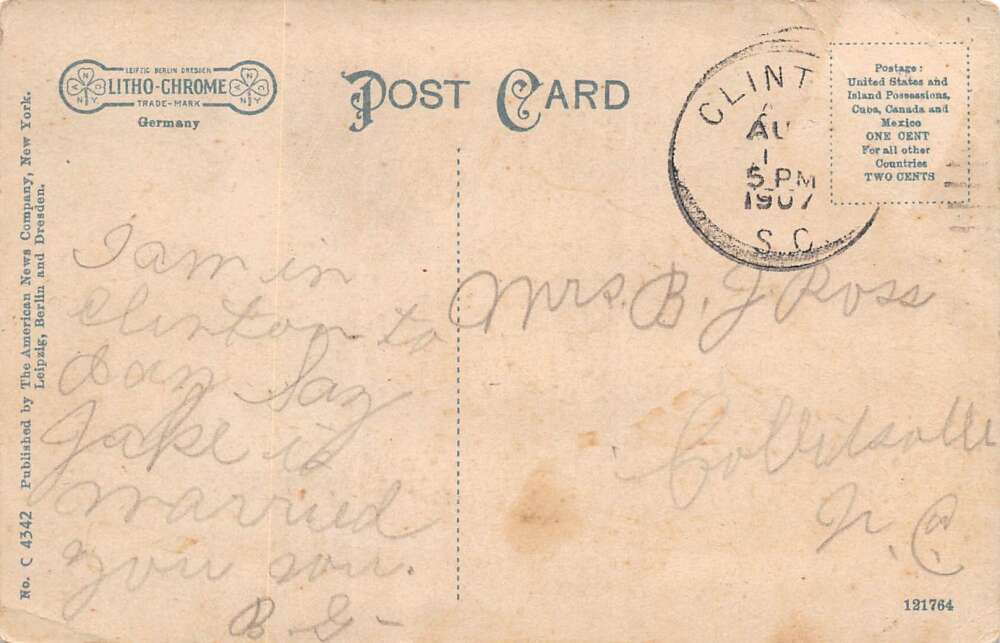 No. C 4342 Published by The American News Company, New York.
Leipzig, Berlin and Dresden.
LEIPZIG BERLIN DRESDEN
LITHO-CHROME
TRADE-MARK
Germany
POST CARD
CLINT
AU
1
5 PM
1907
S.C.
Postage:
United States and
Island Possessions,
Cuba, Canada and
Mexico
ONE CENT
For all other
Countries
TWO CENTS
I am in
Clinton to
day
Jake is
married
you son.
B G-
Mrs. B. J. Ross
N. C.
121764